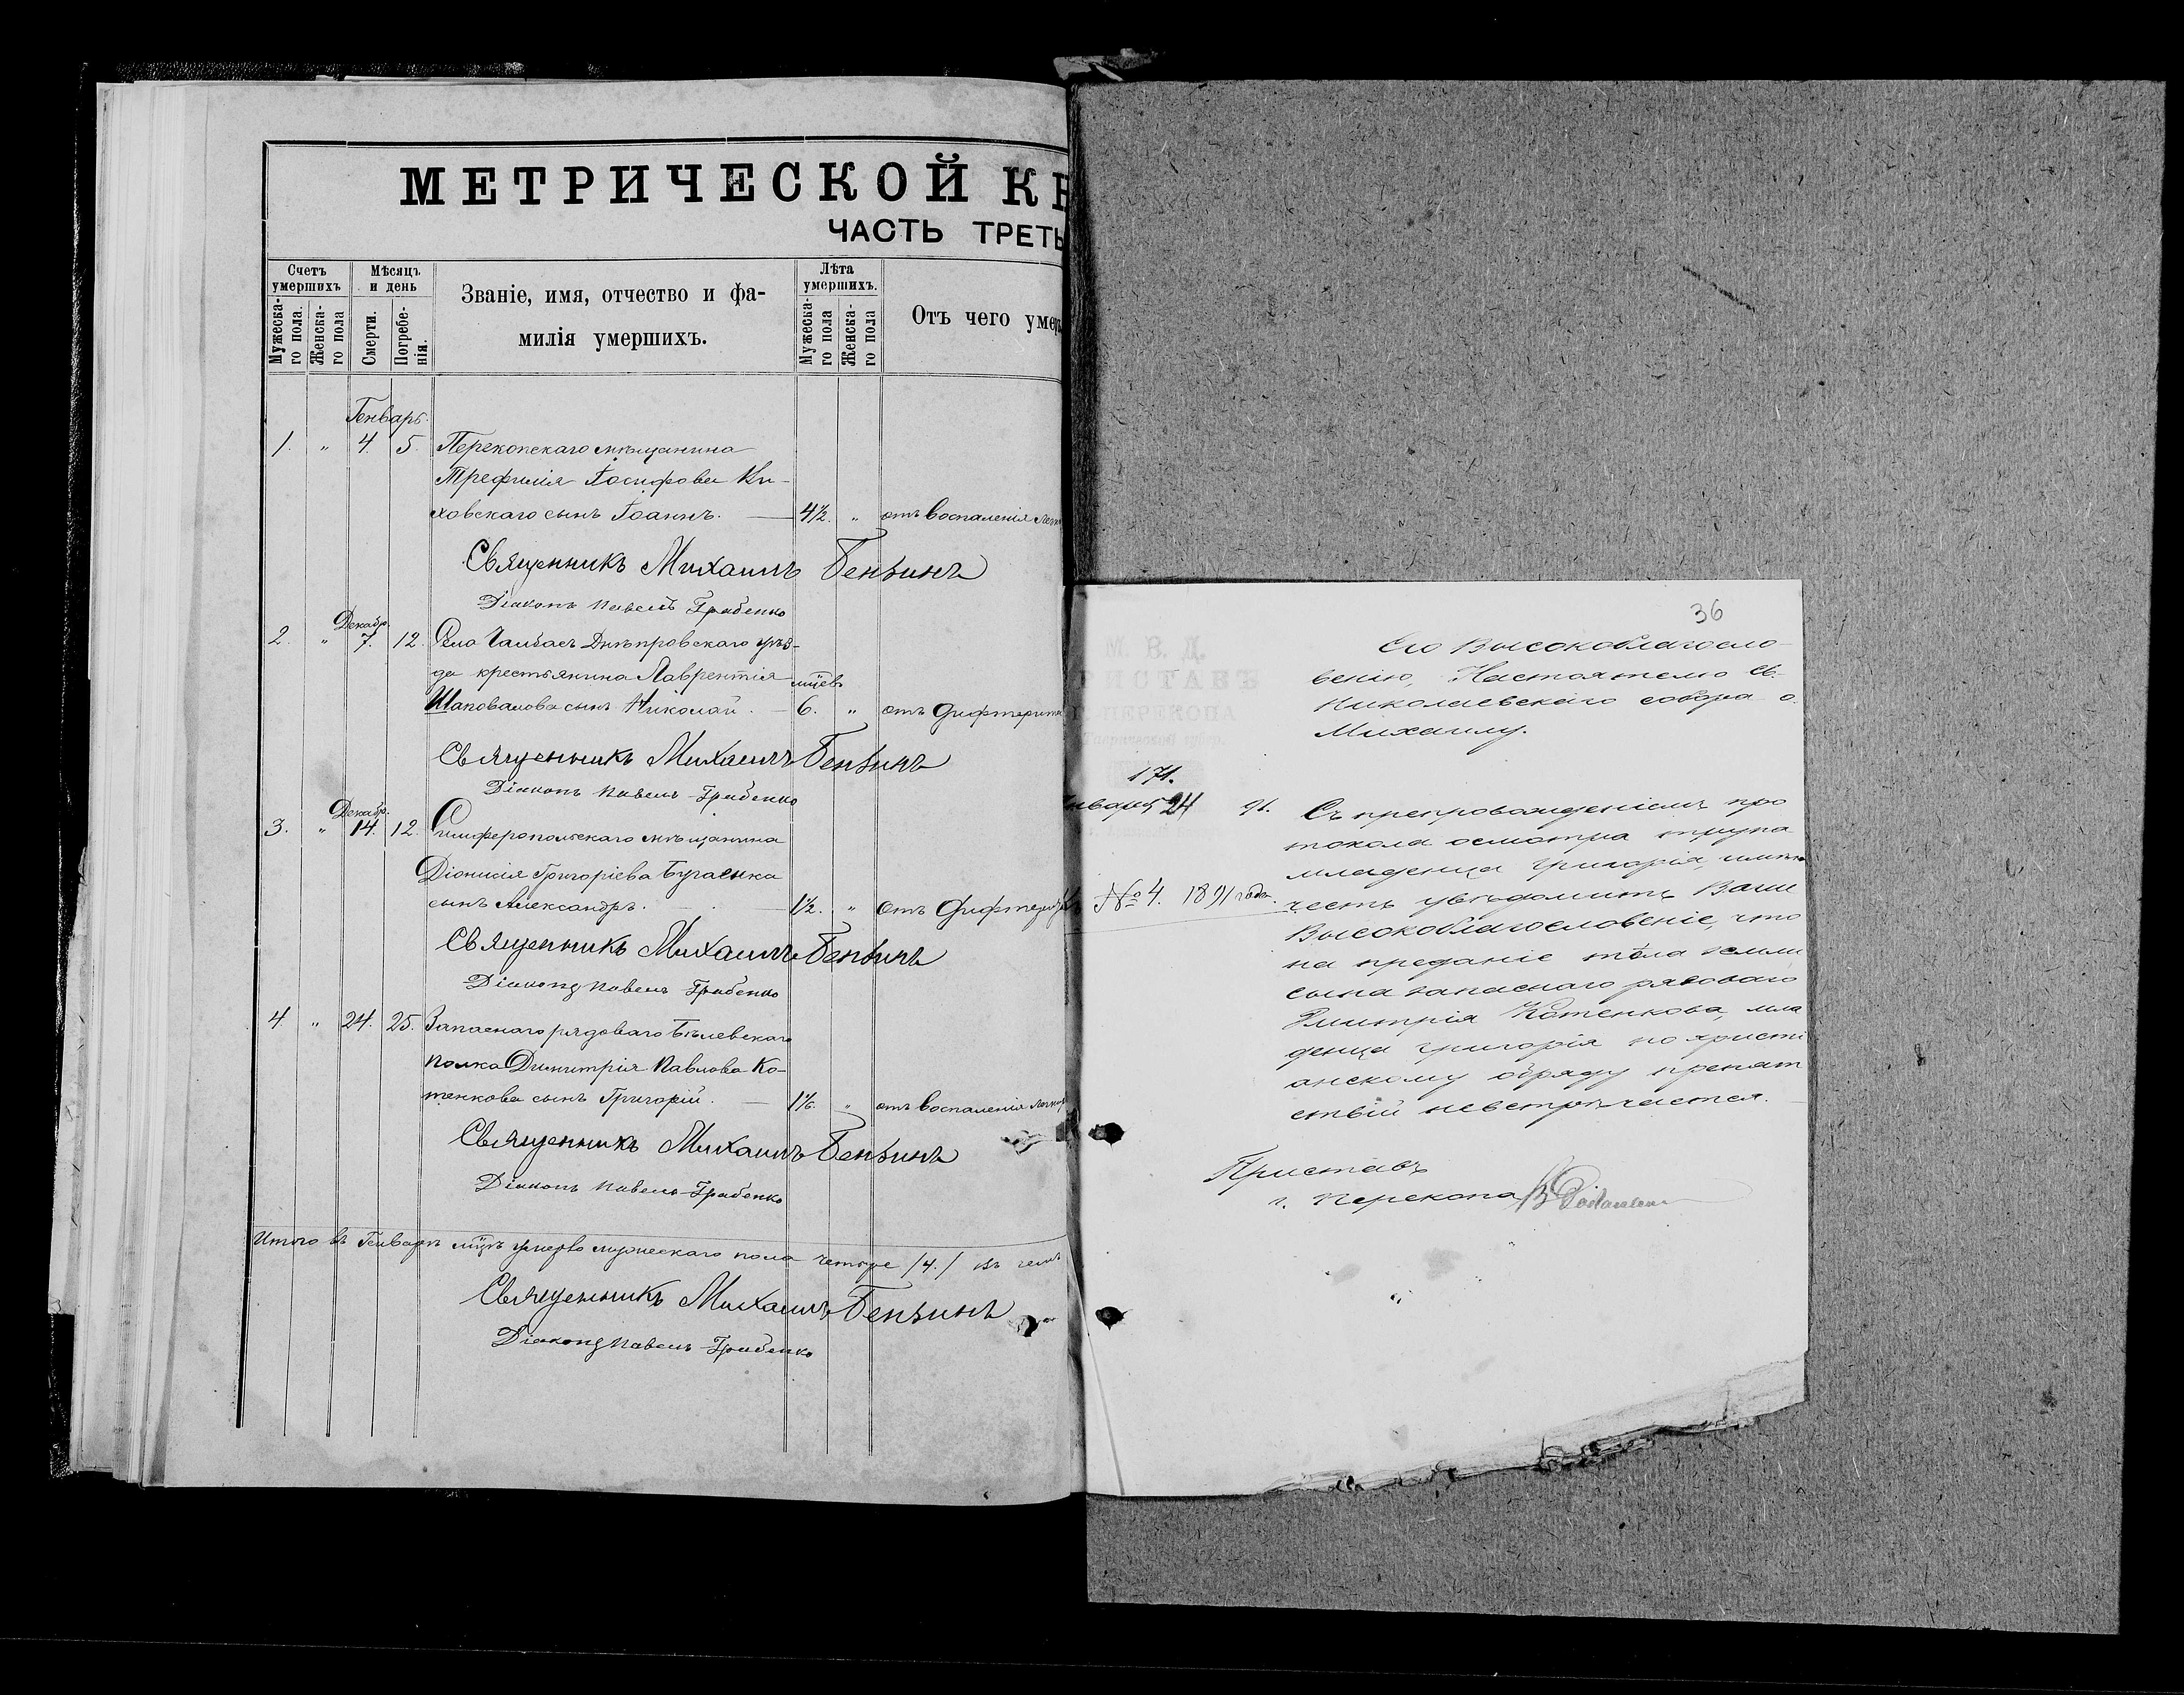 МЕТРИЧЕСКОЙ КН
ЧАСТЬ ТРЕТЬ
Счетъ умершихъ
Мѣсяцъ и день
Званіе, имя, отчество и фа-
милія умершихъ.
Лѣта умершихъ.
Отъ чего умер
Мужеска-
го пола.
Женска-
го пола
Смерти.
Погребе-
нія.
Мужеска-
го пола
Женска-
го пола
Генварь.
1. " 4. 5. Перекопскаго мѣщанина
Трефилія Іосифова Ки-
ховскаго сынъ Іоаннъ. 4½. " отъ воспаленія легк
Священникъ Михаилъ Бензинъ
Діаконъ Павелъ Грабенко
Декабр.
2. " 7. 12. Села Чалбасъ Днѣпровскаго уѣз-
да крестьянина Лаврентія мцевъ
Шаповалова сынъ Николай. 6. " отъ дифтерита
Священникъ Михаилъ Бензинъ
Діаконъ Павелъ Грабенко
Декабр.
3. " 14. 12. Симферопольскаго мѣщанина
Діонисія Григоріева Бугаенка
сынъ Александръ. 1½. " отъ дифтерита
Священникъ Михаилъ Бензинъ
Діаконъ Павелъ Грабенко
4. " 24. 25. Запаснаго рядоваго Бѣлевскаго
полка Димитрія Павлова Ко-
тенкова сынъ Григорій. " отъ воспаленія легких
Священникъ Михаилъ Бензинъ
Діаконъ Павелъ Грабенко
Итого въ Генварѣ мцѣ умерло мужескаго пола четыре /4./ въ чемъ
Священникъ Михаилъ Бензинъ
Діаконъ Павелъ Грабенко
36
М. В. Д.
РИСТАВЪ
Г. ПЕРЕКОПА
Таврической губер.
171.
нваря 24 91.
№ 4. 1891 года.
Его Высокоблагосло-
венію, Настоятелю Св.
Николаевскаго собора о.
Михаилу.
Съ препровожденіемъ про
токола осмотра трупа
младенца Григорія, имѣю
честь увѣдомить Ваше
Высокоблагословеніе, что
на преданіе тѣла земли
сына запаснаго рядоваго
Дмитрія Котенкова, мла
денца Григорія по христі
анскому обряду препят
ствій невстрѣчается.
Приставъ
г. Перекопа